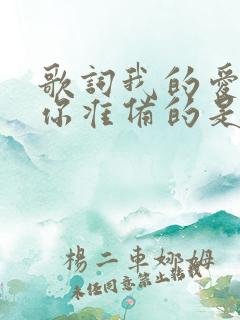 歌詞我的愛
你准備的是
楊二車娜姆
未任同意禁止轉載